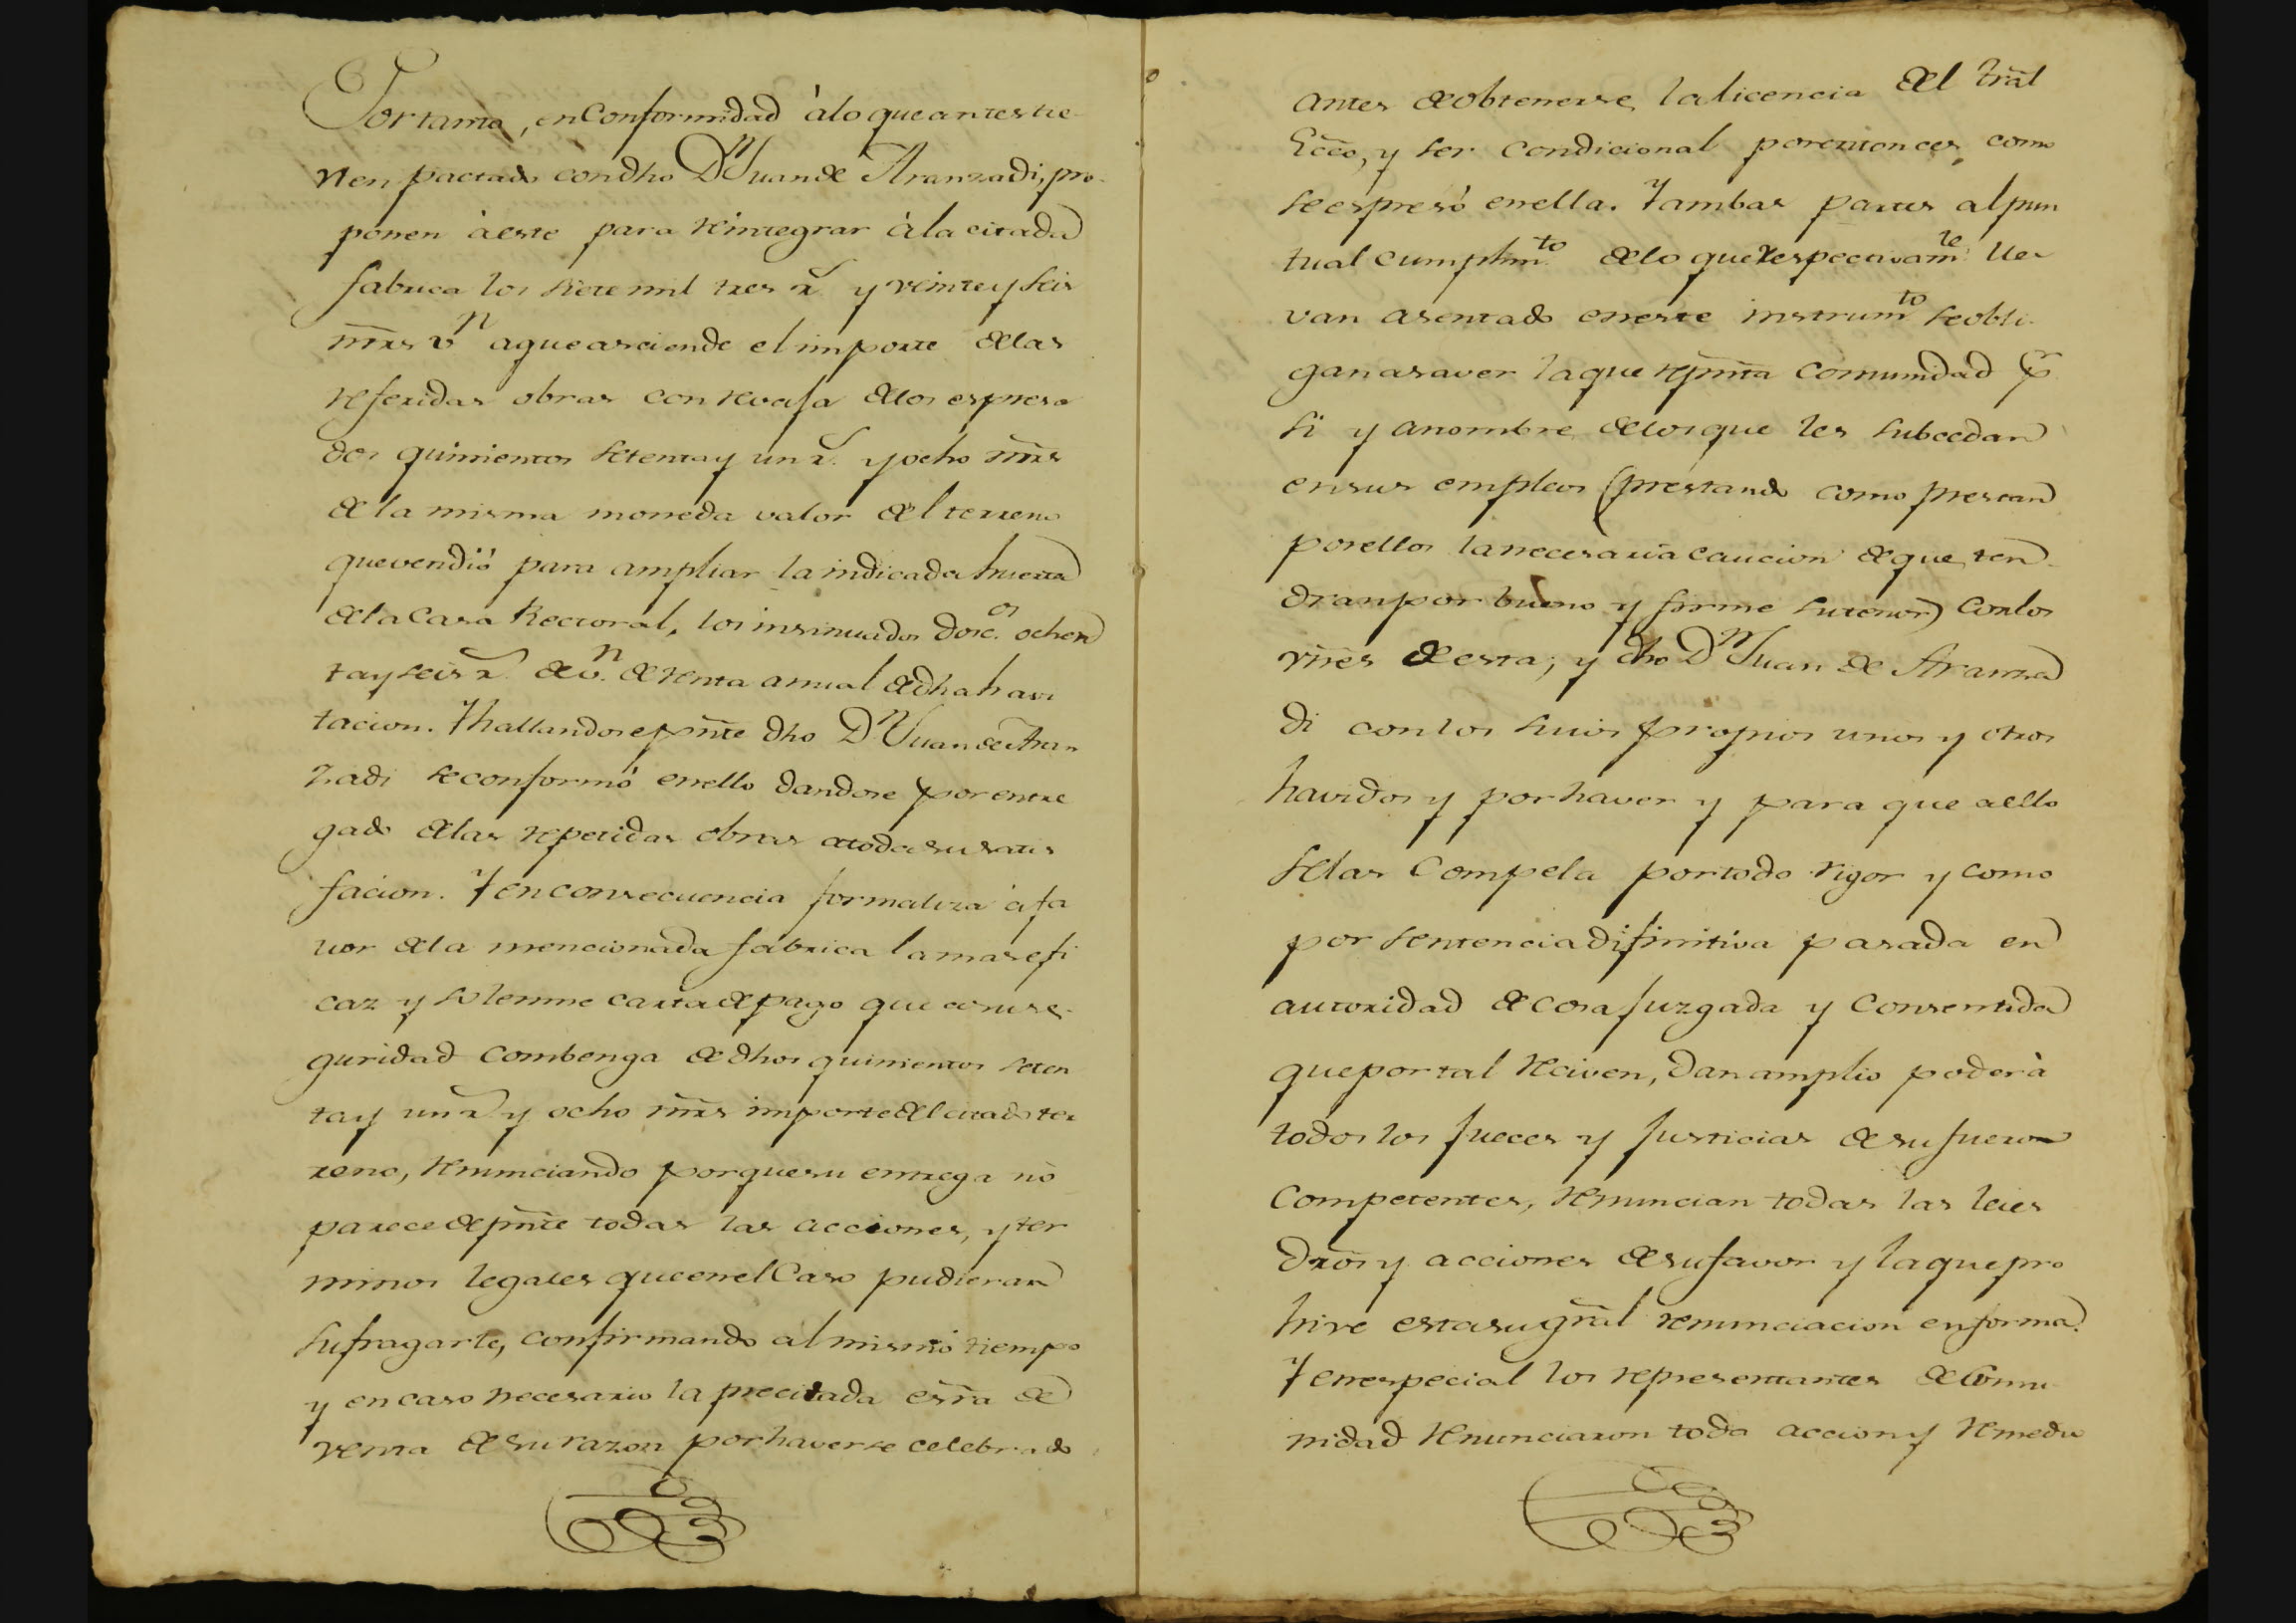 Portanto, en Conformidad à lo que antes tie
nen pactado con dho Dⁿ Juan de Aranzadi, pro
ponen à este para reintegrar à la citada
fabrica los siete mil tres r.ˢ y veinte y seis
mrs vⁿ a que asciende el importe de las
referidas obras con revaja de los espresa
dos quinientos setenta y un r.ˢ y ocho mrs
de la misma moneda valor del terreno
que vendió para ampliar la indicada huerta
de la Casa Rectoral, los insinuados dosc.ᵒˢ ochen
ta y seis r.ˢ de v.ⁿ de renta anual de dha havi
tacion. Y hallandose pñte dho Dⁿ Juan de Aran
zadi se conformó en ello dandose por entre
gado de las repetidas obras a toda su satis
facion. Y en consecuencia formaliza à fa
vor de la mencionada fábrica la mas efi
caz y solemne carta de pago que a su se
guridad combenga de dhos quinientos seten
ta y un r.ˢ y ocho mrs importe del citado ter
reno, renunciando porque su entrega no
parece de pñte todas las acciones, y ter
minos legales que en el Caso pudieran
sufragarle, confirmando al mismo tiempo
y en caso necesario la precitada esrra de
venta de su razon por haverse celebrado
antes de obtenerse la licencia del Trãl
Ecco, y ser condicional por entonces, como
se espresó en ella. Y ambas partes al pun
tual cumplimᵗᵒ de lo que respectivamᵗᵉ lle
van asentado en este instrumᵗᵒ se obli
gan a saver la que repñta Comunidad pʳ
si y a nombre de los que les subcedan
en sus empleos (prestando como prestan
por ellos la necesaria caucion de que ten
dran por bueno y firme su tenor) con los
vñes de esta; y dho Dⁿ Juan de Aranza
di con los suios propios unos y otros
havidos y por haver y para que a ello
se las Compela por todo rigor y como
por sentencia difinitiva pasada en
autoridad de cosa Juzgada y Consentida
que por tal reciven, dan amplio poder à
todos los Jueces y Justicias de su fuero
Competentes, renuncian todas las leies
dros y acciones de su favor y la que pro
hive esta su grãl renunciacion en forma.
Y en especial los representantes de Comu
nidad renunciaron toda accion y remedio